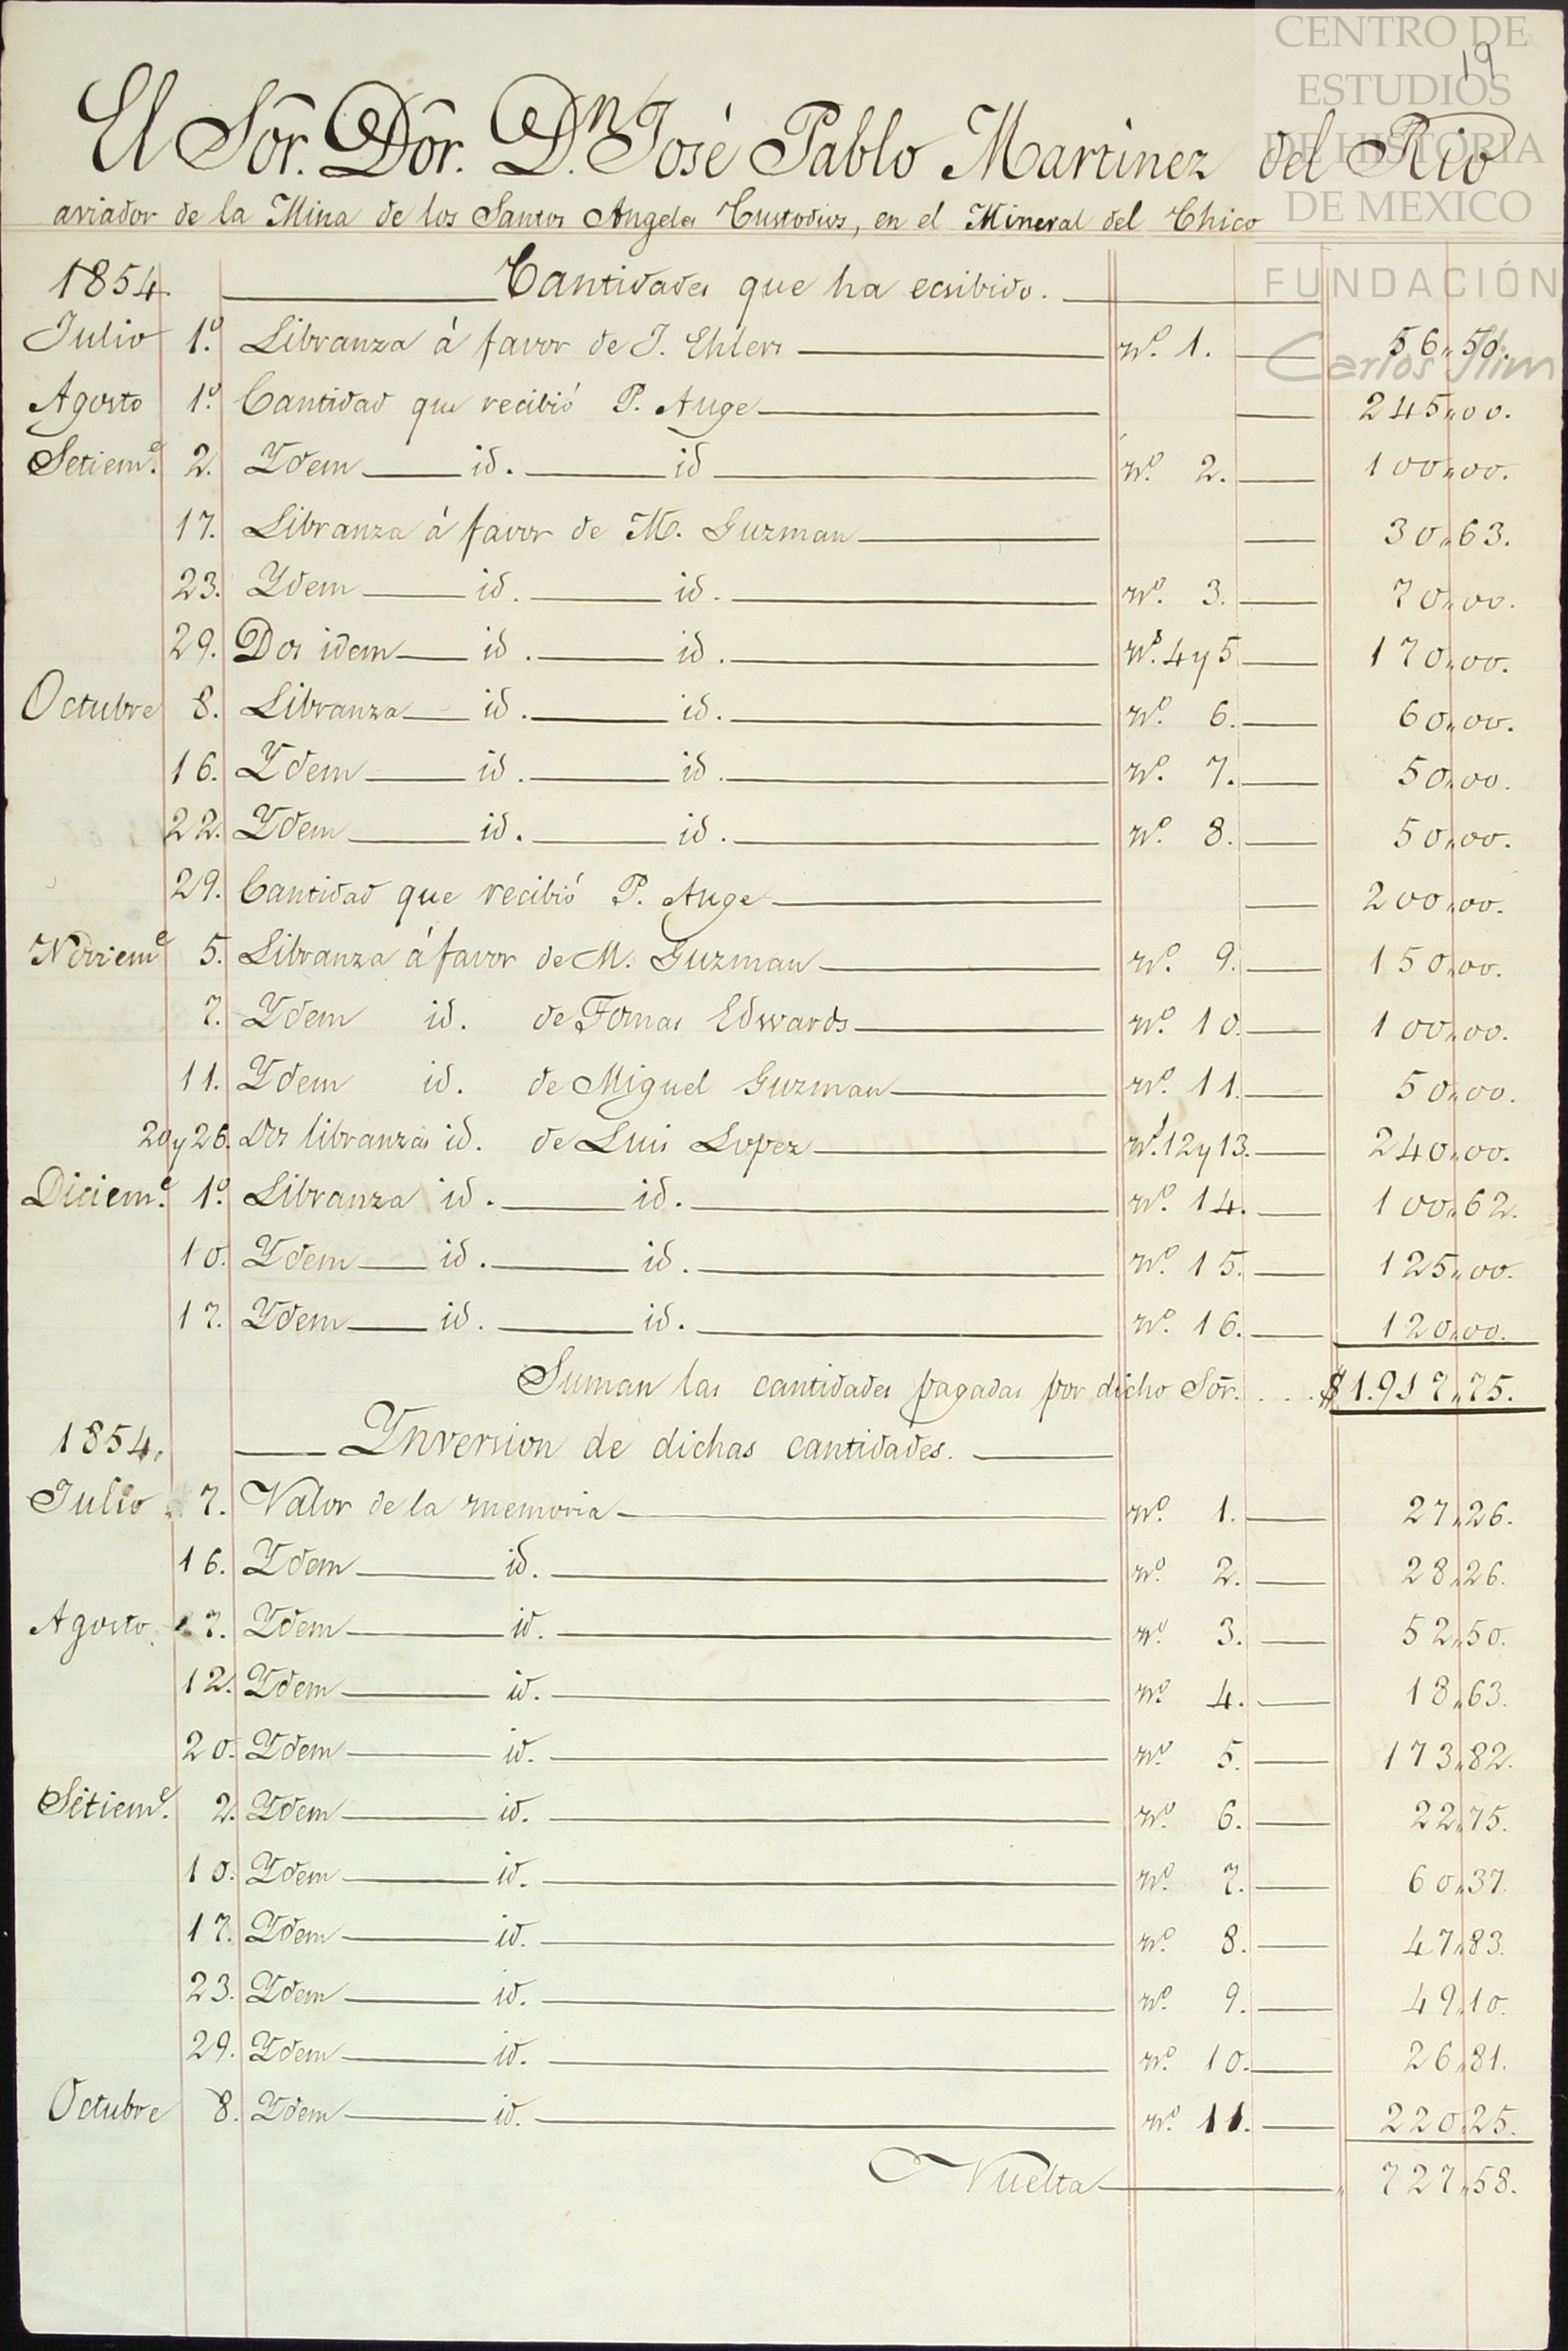 CENTRO DE
ESTUDIOS
DE HISTORIA
DE MEXICO
FUNDACIÓN
Carlos Slim
19
El Sōr. Dōr. Dn. José Pablo Martinez del Rio
aviador de la Mina de los Santos Angeles Custodios, en el Mineral del Chico
1854. Cantidades que ha ecsibido.
Julio 1º. Libranza á favor de J. Ehlers nº. 1. 56,,50.
Agosto 1º. Cantidad que recibió P. Auge 245,,00.
Setieme. 2. Ydem id. id nº. 2. 100,,00.
17. Libranza á favor de M. Guzman 30,,63.
23. Ydem id. id. nº. 3. 70,,00.
29. Dos idem id. id. ns. 4 y 5 170,,00.
Octubre 8. Libranza id. id. nº. 6. 60,,00.
16. Ydem id. id. nº. 7. 50,,00.
22. Ydem id. id. nº. 8. 50,,00.
29. Cantidad que recibió P. Auge 200,,00.
Novieme 5. Libranza á favor de M. Guzman nº. 9. 150,,00.
7. Ydem id. de Tomas Edwards nº. 10. 100,,00.
11. Ydem id. de Miguel Guzman nº. 11. 50,,00.
20 y 26. Dos libranzas id. de Luis Lopez ns. 12 y 13. 240,,00.
Dicieme. 1º. Libranza id. id. nº. 14. 100,,62.
10. Ydem id. id. nº. 15. 125,,00.
17. Ydem id. id. nº. 16. 120,,00.
Suman las cantidades pagadas por dicho Sōr. . . . $1.917,,75.
1854. Ynversion de dichas cantidades.
Julio 7. Valor de la memoria nº. 1. 27,,26.
16. Ydem id. nº. 2. 28,,26.
Agosto. 7. Ydem id. nº. 3. 52,,50.
12. Ydem id. nº. 4. 18,,63.
20. Ydem id. nº. 5. 173,,82.
Setieme. 2. Ydem id. nº. 6. 22,,75.
10. Ydem id. nº. 7. 60,,37.
17. Ydem id. nº. 8. 47,,83.
23. Ydem id. nº. 9. 49,,10.
29. Ydem id. nº. 10. 26,,81.
Octubre 8. Ydem id. nº. 11. 220,,25.
Vuelta ,, 727,,58.